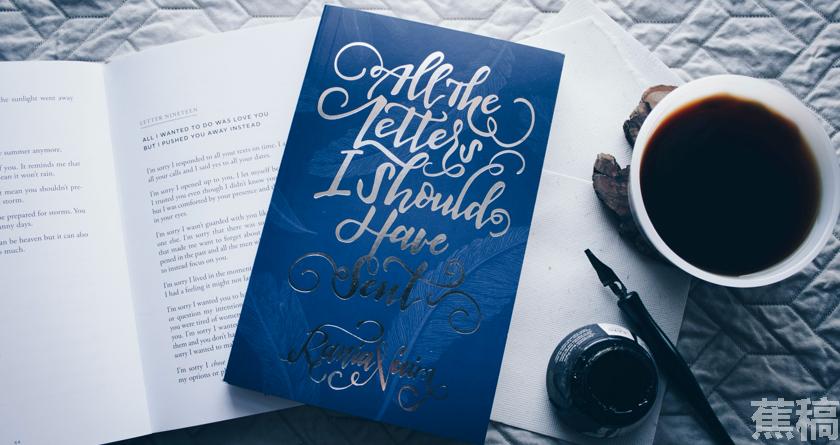 he sunlight went away
e summer anymore.
f you. It reminds me that
ean it won't rain.
t mean you shouldn't pre-
storm.
be prepared for storms. You
nny days.
an be heaven but it can also
s much.
64
LETTER NINETEEN
ALL I WANTED TO DO WAS LOVE YOU
BUT I PUSHED YOU AWAY INSTEAD
I'm sorry I responded to all your texts on time. I
all your calls and I said yes to all your dates.
I'm sorry I opened up to you, I let myself be
I trusted you even though I didn't know you
but I was comforted by your presence and th
in your eyes.
I'm sorry I wasn't guarded with you lik
one else. I'm sorry that there was so
that made me want to forget about
pened in the past and all the men w
to instead focus on you.
I'm sorry I lived in the momen
I had a feeling it might not las
I'm sorry I wanted you to b
or question my intention
you were tired of wome
you. I'm sorry I wante
them and you don't ha
sorry I wanted to ma
I'm sorry I chos
my options or p
All the
Letters
I Should
Have
Sent
Rania Naim
蕉稿